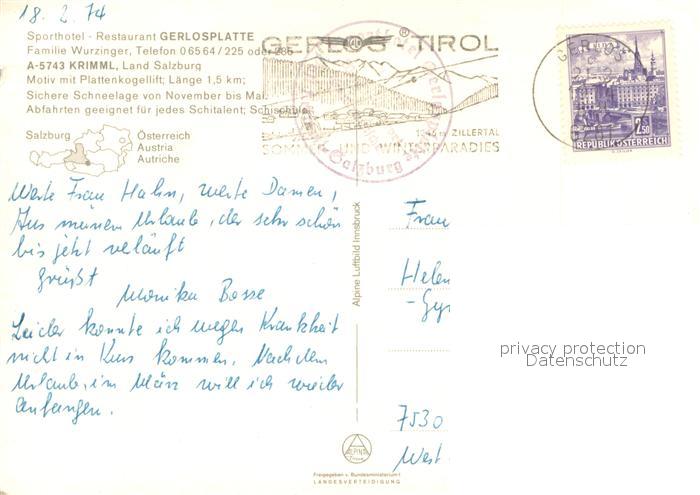 18. 2. 74
Sporthotel - Restaurant GERLOSPLATTE
Familie Wurzinger, Telefon 0 65 64 / 225 oder 285
A-5743 KRIMML, Land Salzburg
Motiv mit Plattenkogellift; Länge 1,5 km;
Sichere Schneelage von November bis Mai.
Abfahrten geeignet für jedes Schitalent; Schischule
Salzburg
Österreich
Austria
Autriche
GERLOS - TIROL
1246 m ZILLERTAL
SOMMER UND WINTERPARADIES
Salzburg
GERLOS
2.50
REPUBLIK ÖSTERREICH
Werte Frau Hahn, werte Damen,
Aus meinem Urlaub, der sehr schön
bis jetzt verläuft
grüßt
Monika Bosse
Leider konnte ich wegen Krankheit
nicht in Kurs kommen. Nach dem
Urlaub, im März will ich wieder
anfangen.
Alpine Luftbild Innsbruck
Frau
Helen
-Gy
7530
West
privacy protection
Datenschutz
ALPINE
Freigegeben v. Bundesministerium f.
LANDESVERTEIDIGUNG